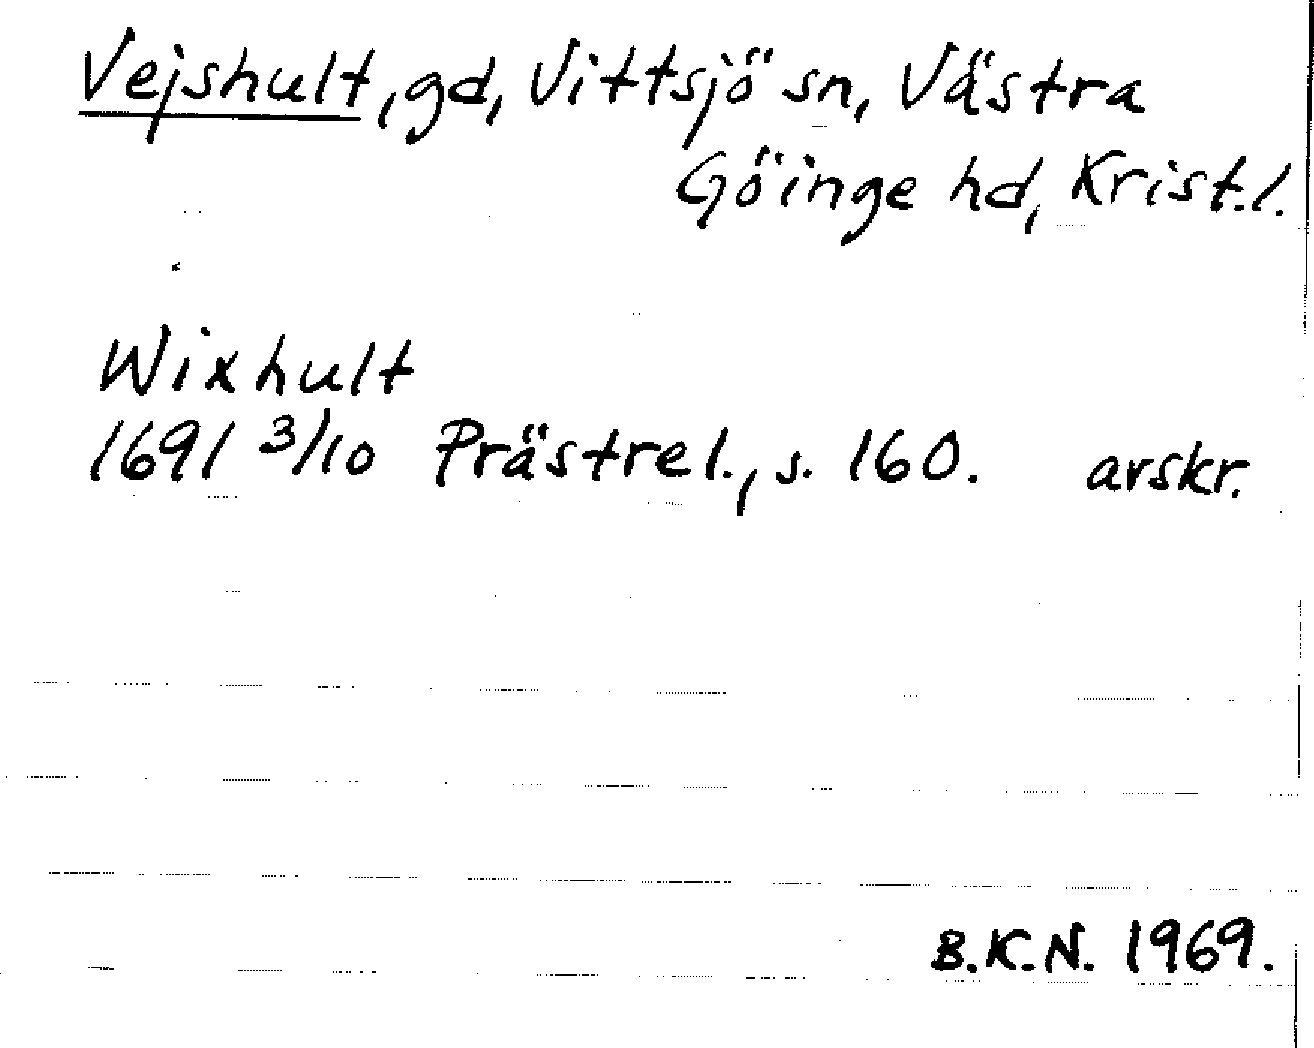 Vejshult, gd, Vittsjö sn, Västra
Göinge hd, Krist.l.
Wixhult
1691 3/10 Prästrel., s. 160. avskr.
B.K.N. 1969.